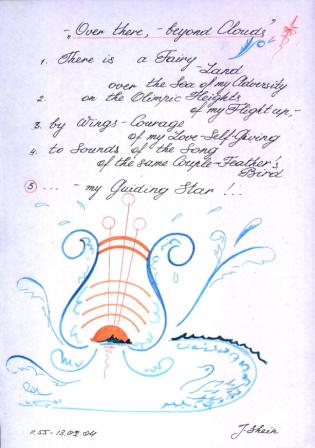 -„Over there, - beyond Clouds"
1. There is a Fairy-
-Land
over the Sea of my Adversity
2. on the Olimpic Heights
of my Flight up,-
3. by Wings-Courage
of my Love-Self-Giving
4. to Sounds of the Song
of the same Couple-Feather's
Bird
5 ... - my Guiding Star !..
11.55 - 13.02.04
J. Shein